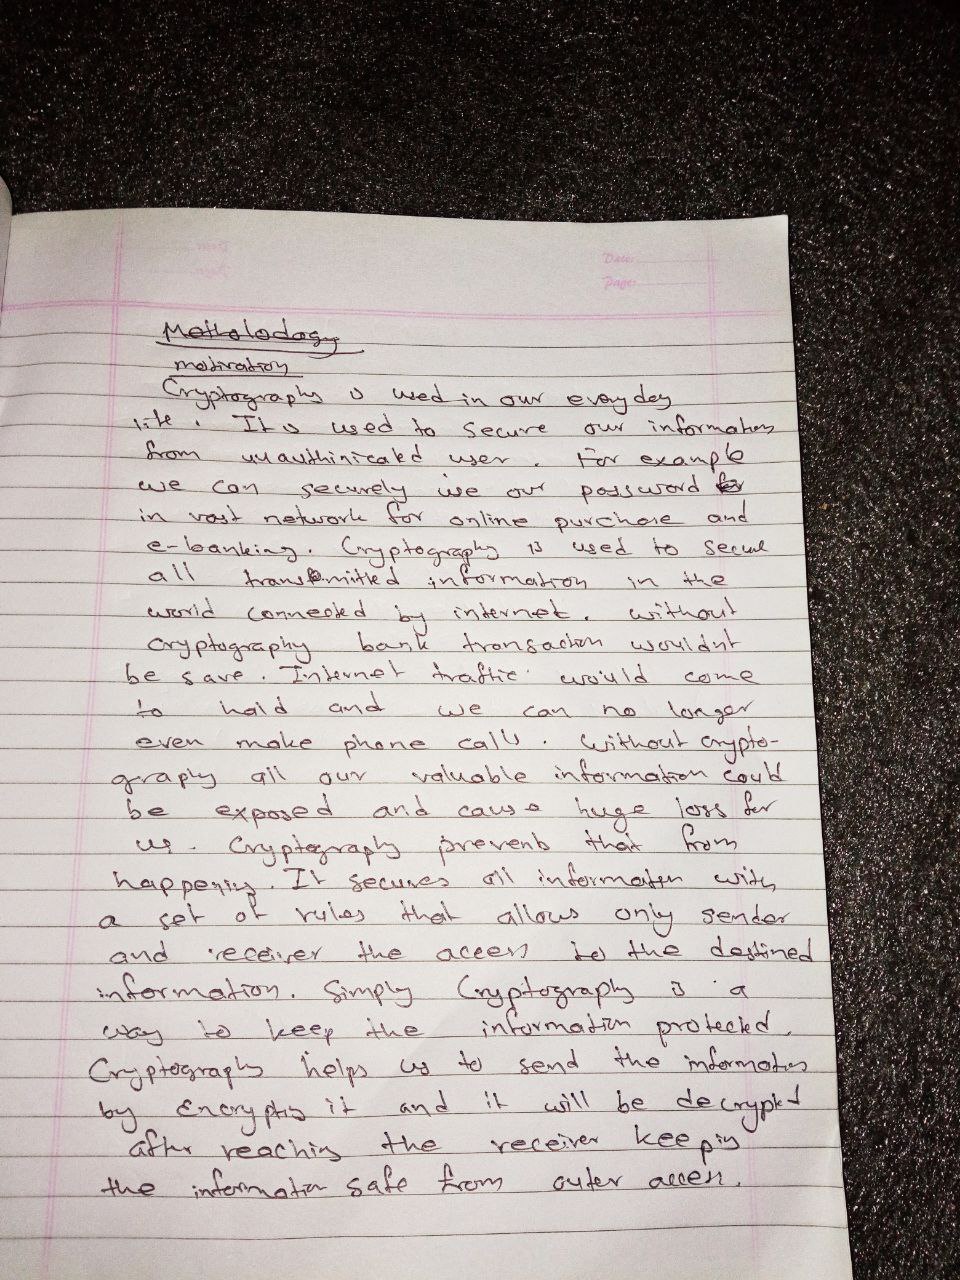 Date:
Page:
Metholodogy
motivation
Cryptography is used in our everyday
life. It is used to secure our information
from unauthinicated user. For example
we can securely use our password for
in vast network for online purchase and
e-banking. Cryptography is used to secure
all transmitted information in the
world connected by internet. without
cryptography bank transaction wouldnt
be save. Internet traffic would come
to hald and we can no longer
even make phone calls. Without crypto-
graphy all our valuable information could
be exposed and cause huge loss for
us. Cryptography prevents that from
happening. It secures all information with
a set of rules that allows only sender
and receiver the access to the destined
information. Simply Cryptography is a
way to keep the information protected.
Cryptography helps us to send the information
by Encrypting it and it will be decrypted
after reaching the receiver keeping
the information safe from outer access.